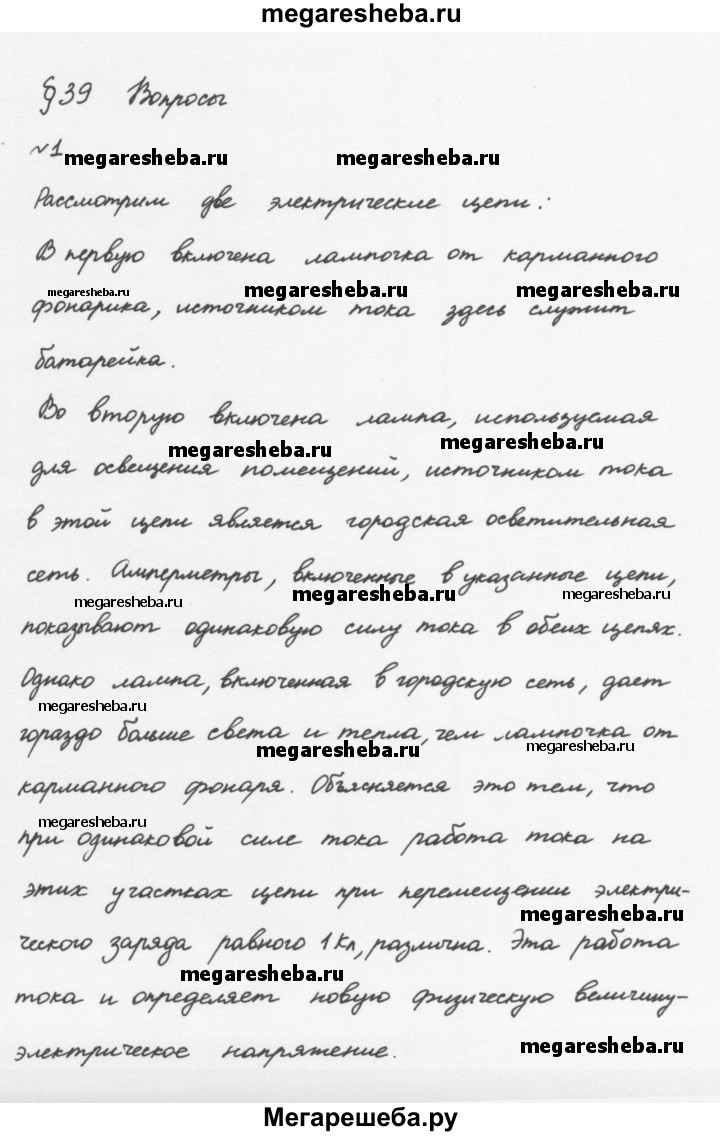 megaresheba.ru
§39 Вопросы
№1 megaresheba.ru megaresheba.ru
Рассмотрим две электрические цепи:
В первую включена лампочка от карманного
megaresheba.ru megaresheba.ru megaresheba.ru
фонарика, источником тока здесь служит
батарейка.
Во вторую включена лампа, используемая
megaresheba.ru megaresheba.ru
для освещения помещений, источником тока
в этой цепи является городская осветительная
сеть. Амперметры, включенные в указанные цепи,
megaresheba.ru megaresheba.ru megaresheba.ru
показывают одинаковую силу тока в обеих цепях.
Однако лампа, включенная в городскую сеть, дает
megaresheba.ru
гораздо больше света и тепла, чем лампочка от
megaresheba.ru megaresheba.ru
карманного фонаря. Объясняется это тем, что
megaresheba.ru
при одинаковой силе тока работа тока на
этих участках цепи при перемещении электри-
megaresheba.ru
ческого заряда равного 1Кл, различна. Эта работа
megaresheba.ru
тока и определяет новую физическую величину-
электрическое напряжение.
megaresheba.ru
Мегарешеба.ру